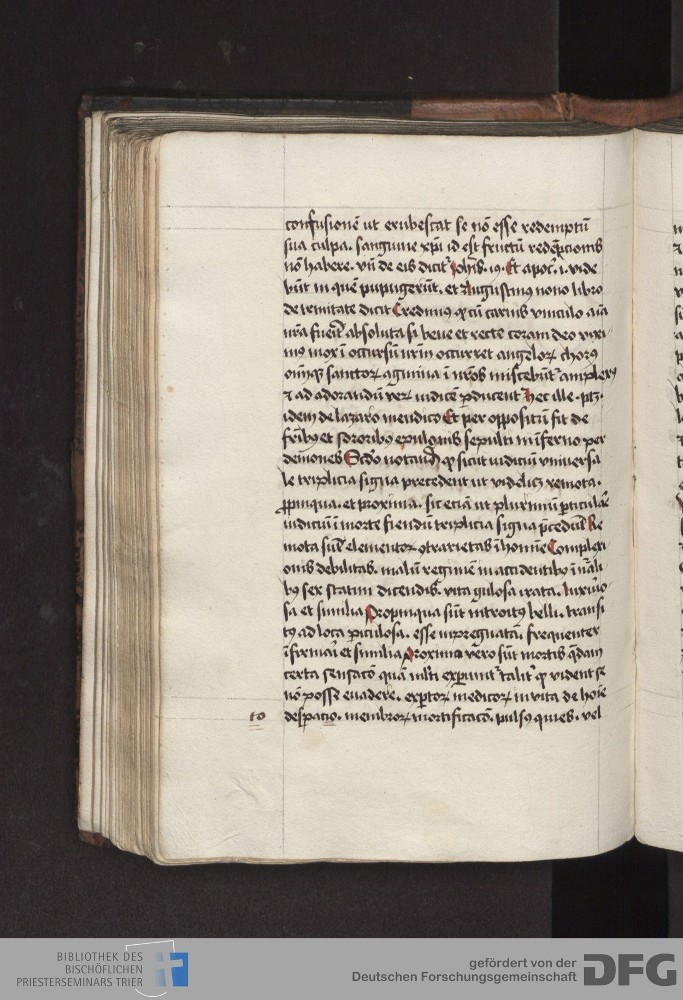 confusionē ut erubescat se nō esse redemptū
sua culpa. sanguine xp̄i id est fructū redēpcionis
nō habere. vn̄ de eis dicit᷑ Joh̄is. 19. Et apoc̄. i. vide
būt in quē pupugerūt. et Augustinus nono libro
de trinitate dicit Credimus ꝙ cū carnis vinculo aīa
nr̄a fuerit absoluta si bene et recte coram deo vixi
mus mox ī occursū nr̄m occurret angeloꝝ chorꝰ
oīmqꝫ sanctoꝝ agmina ī nr̄os miscebūt᷑ amplexꝰ
⁊ ad adorandū veꝝ iudicē ꝑducent Hec ille. ptꝫ
idem de lazaro mendico Et per oppositū fit de
fr̄ibꝰ et sororibꝰ epulonis sepulti in inferno per
demones Scd̄o notand̄ ꝙ sicut iudiciū vniuersa
le triplicia signa precedent ut videlicꝫ remota.
ꝓpinqua. et proxima. sic eciā ut plurimū ꝑticulāe
iudiciū ī morte fiendū triplicia signa p̄cedūt Re
mota sūt elementoꝝ ꝯtrarietas ī homīe Complexi
onis debilitas. malū regimē in accidentibꝰ ī nāli
bꝰ sex statim dicendis. vita gulosa irata. luxurio
sa et similia Propinqua sūt introitꝰ belli. transi
tꝰ ad loca ꝑiculosa. esse inpregnatā. frequenter
īfirmari et similia Proxima vero sūt mortis q̄dam
certa sensacō quā ml̄ti experiunt᷑ talit᷑ ꝙ vident se
nō posse euadere. expertoꝝ medicoꝝ in vita de hoīe
10 desperacio. membroꝝ mortificacō. pulsꝰ quies. vel
BIBLIOTHEK DES
BISCHÖFLICHEN
PRIESTERSEMINARS TRIER
gefördert von der
Deutschen Forschungsgemeinschaft
DFG